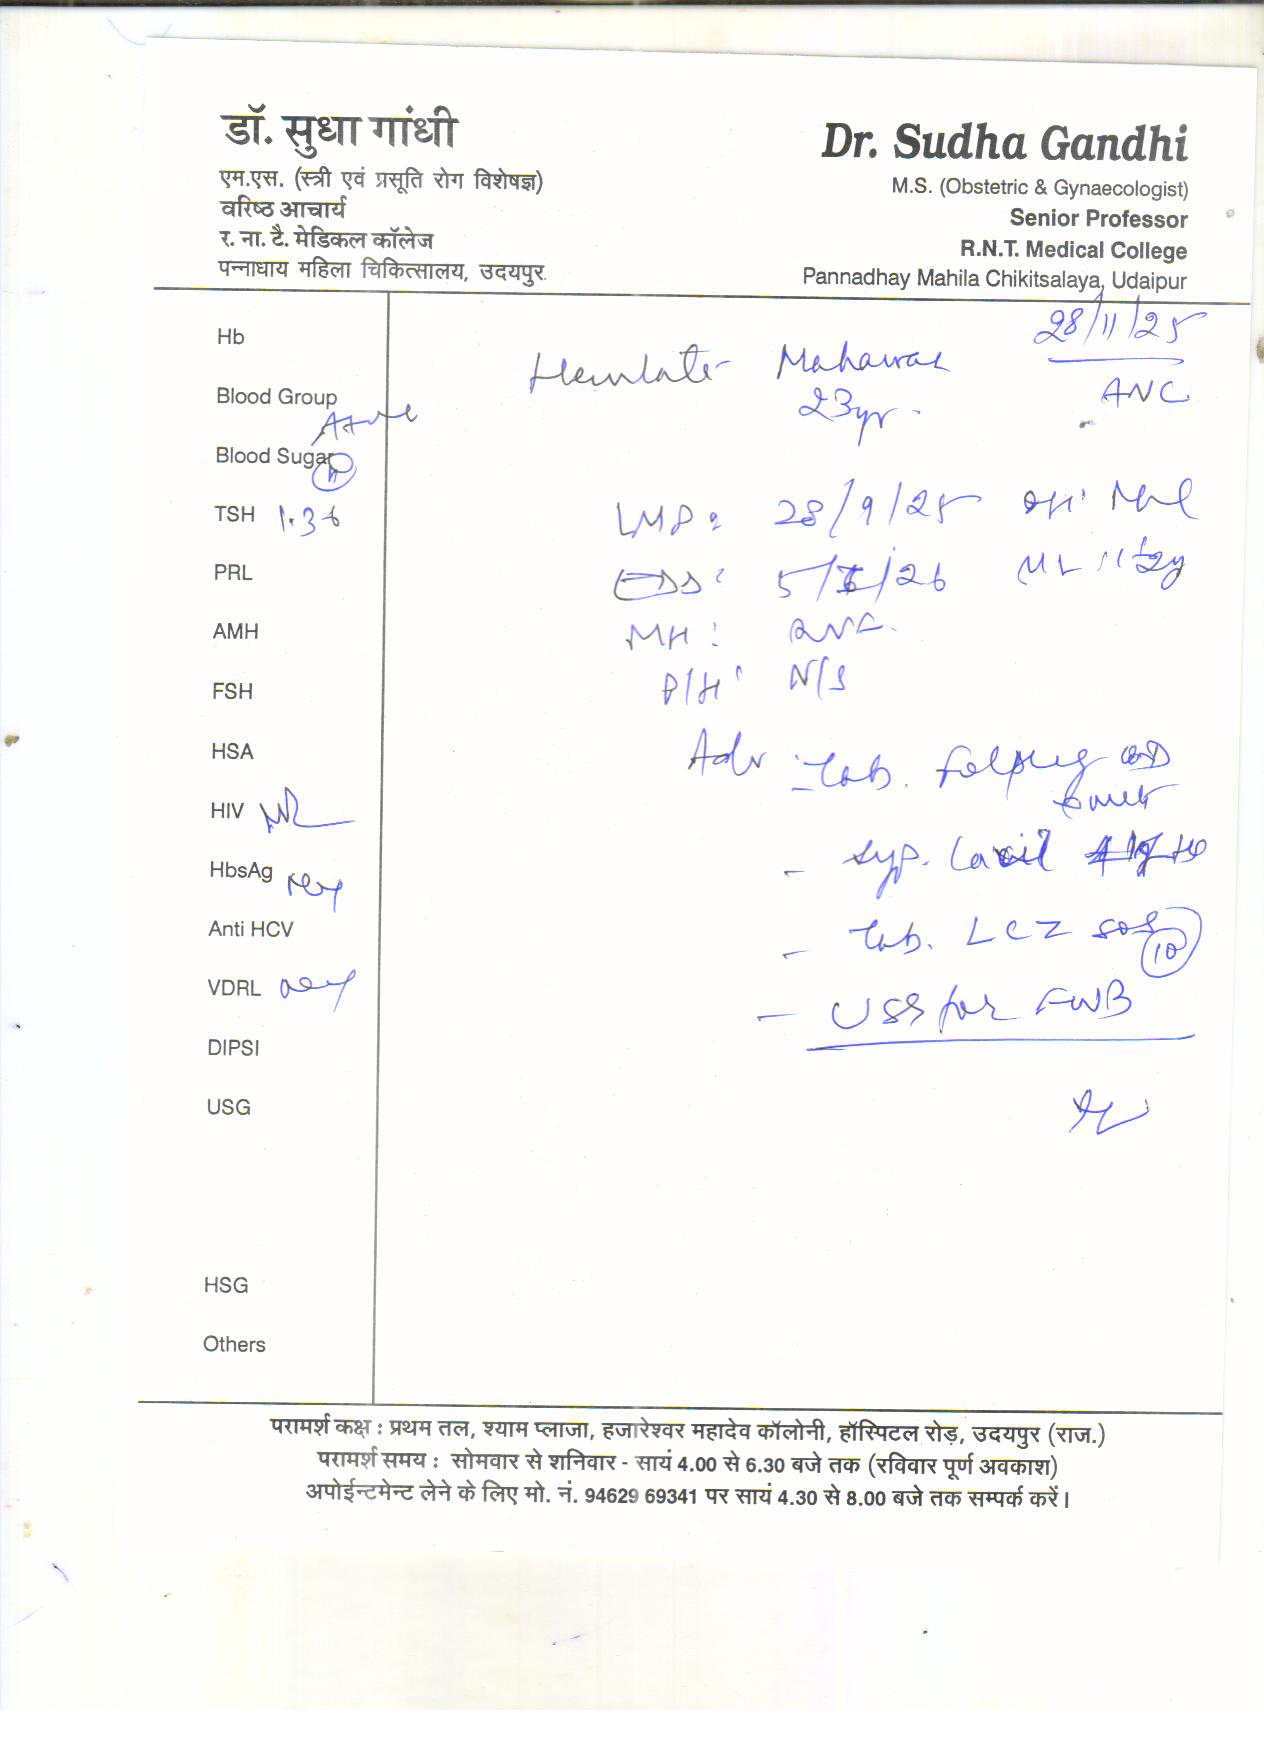 डॉ. सुधा गांधी
एम.एस. (स्त्री एवं प्रसूति रोग विशेषज्ञ)
वरिष्ठ आचार्य
र. ना. टै. मेडिकल कॉलेज
पन्नाधाय महिला चिकित्सालय, उदयपुर
Dr. Sudha Gandhi
M.S. (Obstetric & Gynaecologist)
Senior Professor
R.N.T. Medical College
Pannadhay Mahila Chikitsalaya, Udaipur
28/11/25
ANC
23yr.
Hb
Blood Group
A+ve
Blood Sugar
TSH 1.36
PRL
AMH
FSH
HSA
HIV NR
HbsAg Neg
Anti HCV
VDRL Neg
DIPSI
USG
HSG
Others
LMP: 28/9/25
EDD: 5/ /26
MH:
P/H: N/S
Adv - Tab. OD
- Syp.
- Tab. LCZ SOS 10
- USG for FWB
परामर्श कक्ष : प्रथम तल, श्याम प्लाजा, हजारेश्वर महादेव कॉलोनी, हॉस्पिटल रोड़, उदयपुर (राज.)
परामर्श समय : सोमवार से शनिवार - सायं 4.00 से 6.30 बजे तक (रविवार पूर्ण अवकाश)
अपोईन्टमेन्ट लेने के लिए मो. नं. 94629 69341 पर सायं 4.30 से 8.00 बजे तक सम्पर्क करें।